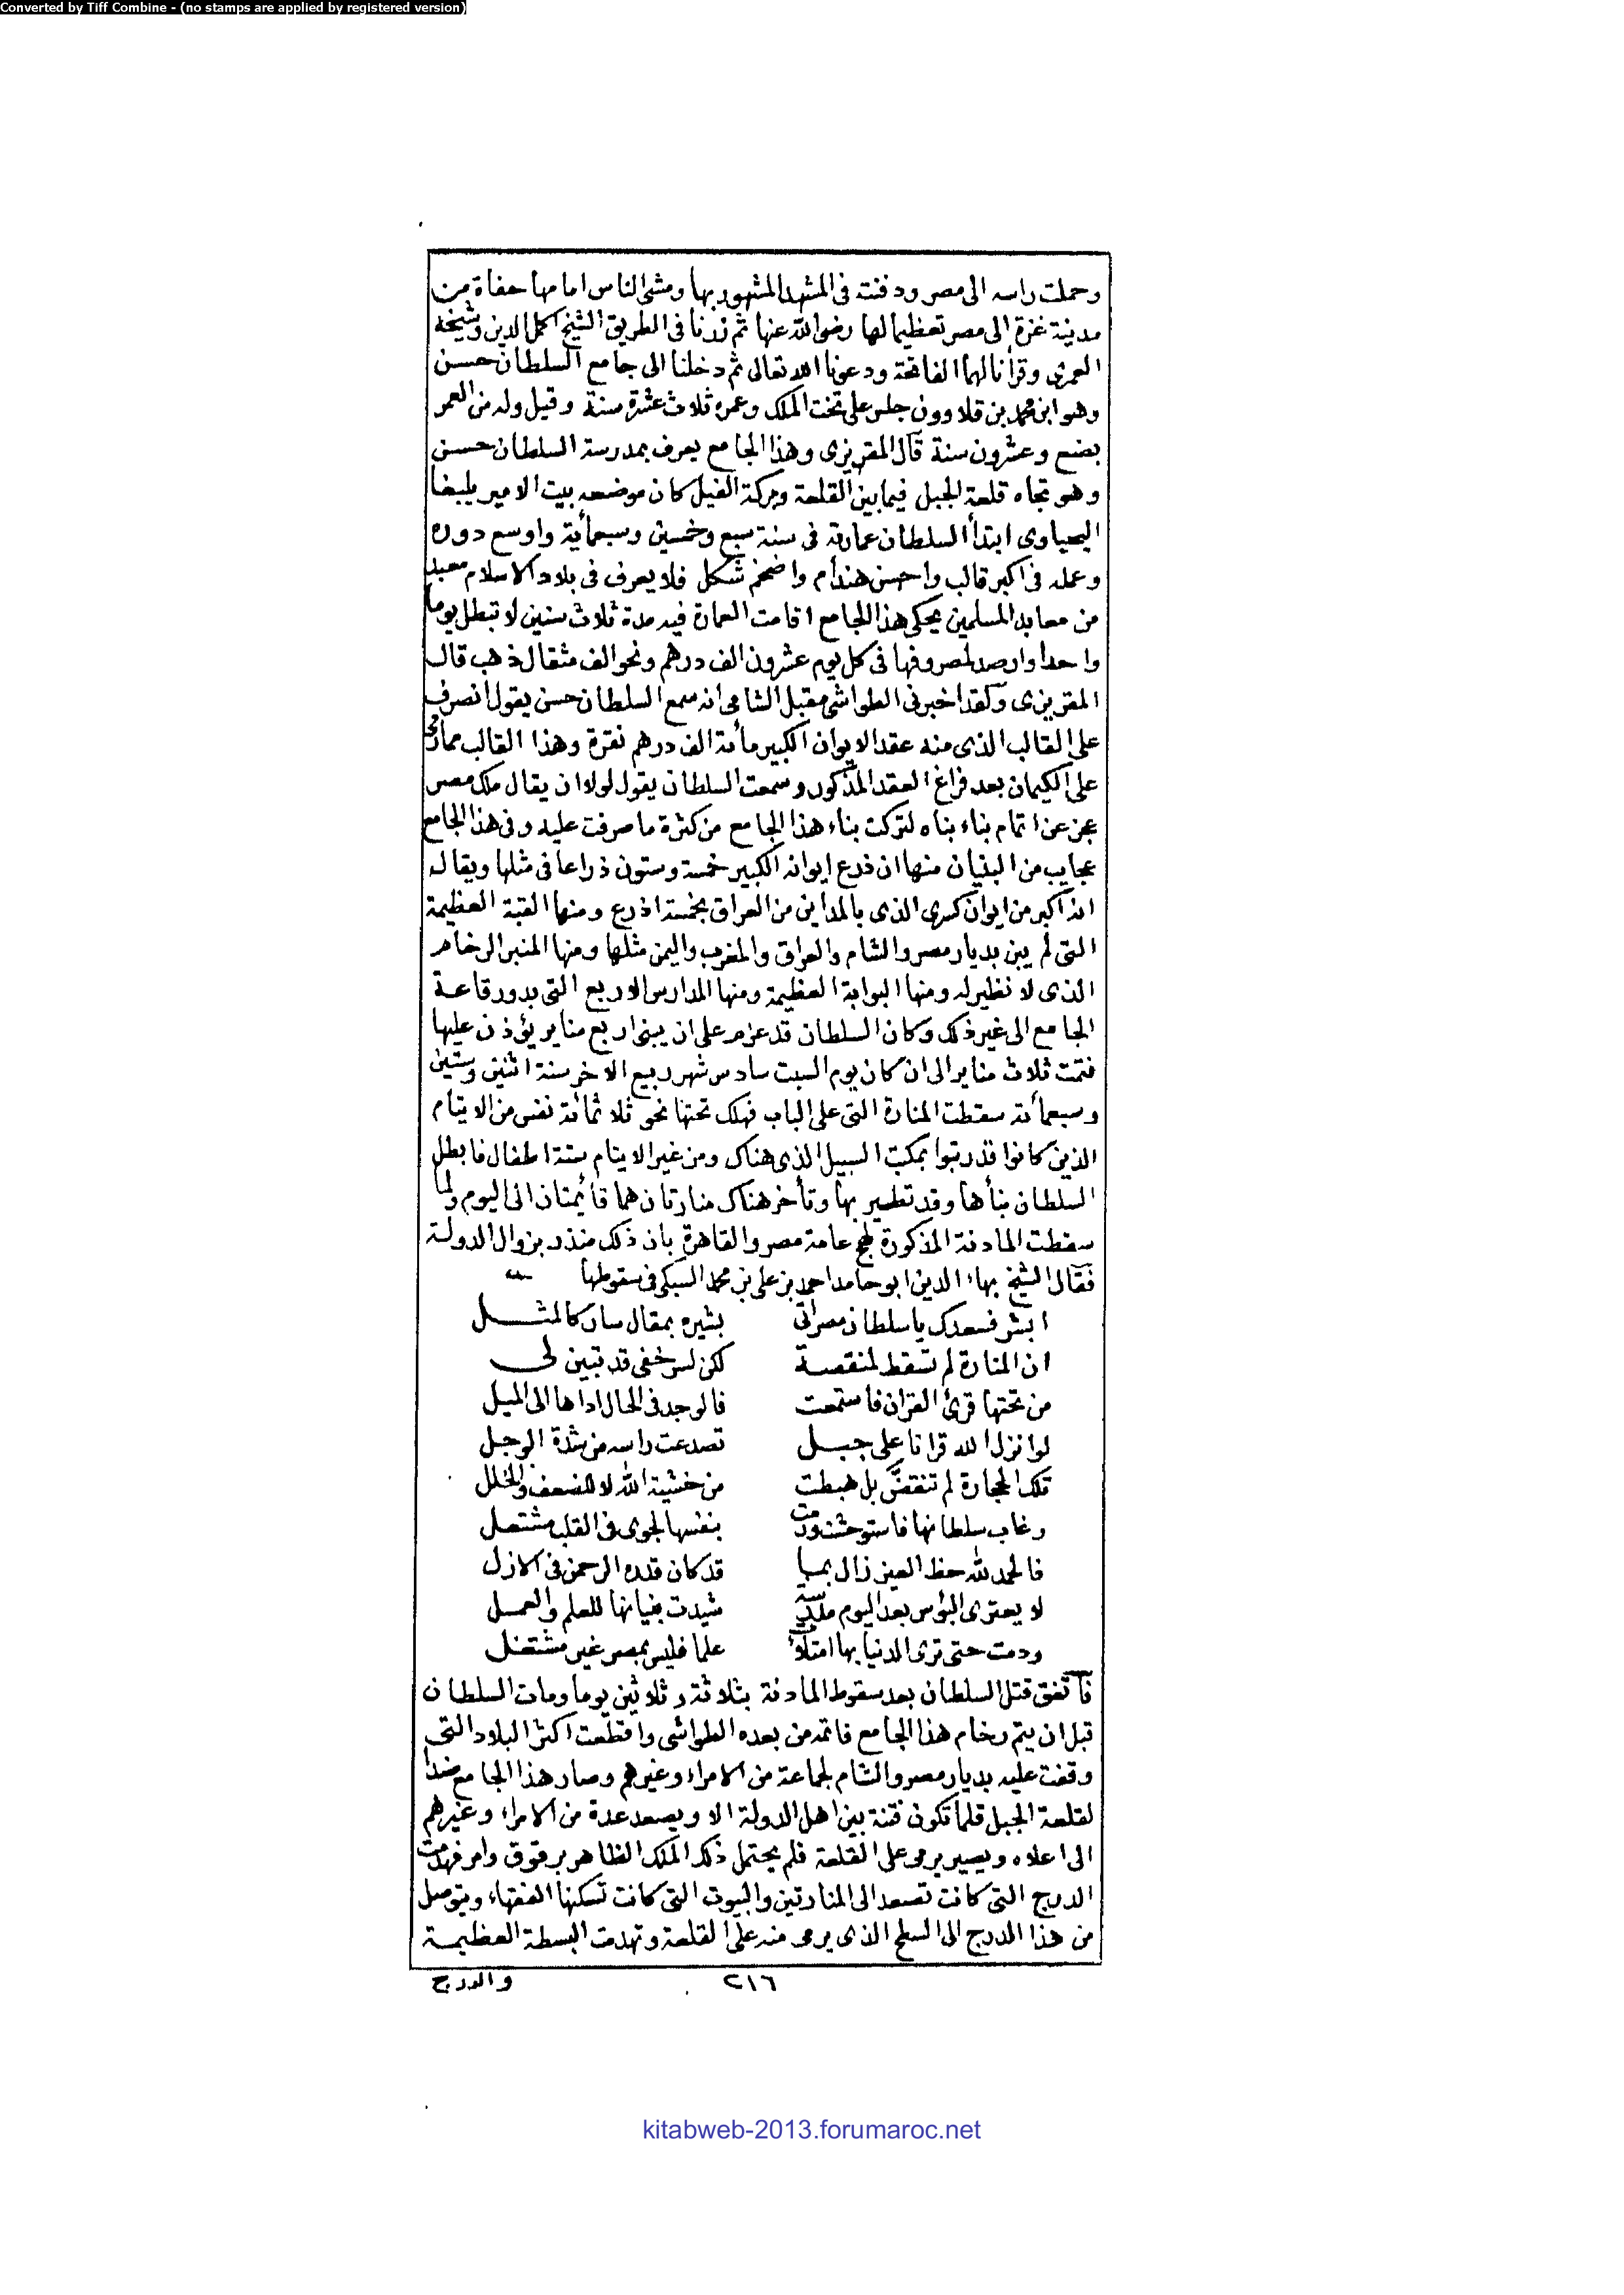 Converted by Tiff Combine - (no stamps are applied by registered version)
وحملت راسه الى مصر ودفنت فى المشهد المشهور بها ومشى الناس امامها حفاة من
مدينة غزة الى مصر تعظيما لها رضى الله عنها ثم زرنا فى الطريق الشيخ اكمل الدين وشيخه
العمرى وقرأنا لهما الفاتحة ودعونا الله تعالى ثم دخلنا الى جامع السلطان حسن
وهو ابن محمد بن قلاوون جلس على تخت الملك وعمره ثلاث عشرة سنة وقيل وله من العمر
بضع وعشرون سنة قال المقريزى وهذا الجامع يعرف بمدرسة السلطان حسن
وهو تجاه قلعة الجبل فيما بين القلعة وبركة الفيل كان موضعه بيت الامير يلبغا
اليحياوى ابتدأ السلطان عمارته فى سنة سبع وخمسين وسبعمأية واوسع دوره
وعمله فى اكبر قالب واحسن هندام واضخم شكل فلا يعرف فى بلاد الاسلام معبد
من معابد المسلمين يحكى هذا الجامع اقامت العمارة فيه مدة ثلاث سنين لا تبطل يوما
واحدا وارصد لمصروفها فى كل يوم عشرون الف درهم ونحو الف مثقال ذهب قال
المقريزى ولقد اخبرنى الطواشى مقبل الشامى انه سمع السلطان حسن يقول انصرف
على القالب الذى منه عقد الايوان الكبير مأية الف درهم نقرة وهذا القالب مما رمى
على الكيمان بعد فراغ العقد المذكور وسمعت السلطان يقول لولا ان يقال ملك مصر
عجز عن اتمام بناء بناه لتركت بناء هذا الجامع من كثرة ما صرفت عليه وفى هذا الجامع
عجايب من البنيان منها ان ذرع ايوانه الكبير خمسة وستون ذراعا فى مثلها ويقال
انه اكبر من ايوان كسرى الذى بالمداين من العراق بخمسة اذرع ومنها القبة العظيمة
التى لم يبن بديار مصر والشام والعراق والمغرب واليمن مثلها ومنها المنبر الرخام
الذى لا نظير له ومنها البوابة العظيمة ومنها المدارس الاربع التى بدور قاعة
الجامع الى غير ذلك وكان السلطان قد عزم على ان يبنى اربع مناير يؤذن عليها
فتمت ثلاث مناير الى ان كان يوم السبت سادس شهر ربيع الاخر سنة اثنين وستين
وسبعمأية سقطت المنارة التى على الباب فهلك تحتها نحو ثلاثمائة نفس من الايتام
الذين كانوا قد رتبوا بمكتب السبيل الذى هناك ومن غير الايتام ستة اطفال فابطل
السلطان بنأها وقد تطير بها وتأخر هناك منارتان هما قائمتان الى اليوم ولما
سقطت المادنة المذكورة لهج عامة مصر والقاهرة بان ذلك منذر بزوال الدولة
فقال الشيخ بهاء الدين ابو حامد احمد بن على بن محمد السبكى فى سقوطها
ابشر فسعدك يا سلطان مصر اتى بشيره بمقال سار كالمثل
ان المنارة لم تسقط لمنقصة لكن لسر خفى قد تبين لى
من تحتها قرئ القران فاستمعت فالوجد فى الحال اداها الى الميل
لو انزل الله قرانا على جبل تصدعت راسه من شدة الوجل
تلك الحجارة لم تنقض بل هبطت من خشية الله لا للضعف والخلل
وغاب سلطانها فاستوحشت ورمت بنفسها لجوى فى القلب مشتعل
فالحمد لله حظ العين زال بما قد كان قدره الرحمن فى الازل
لا يعترى البؤس بعد اليوم مدرسة شيدت بنيانها للعلم والعمل
ودمت حتى ترى الدنيا بها امتلأت علما فليس بمصر غير مشتغل
فأتفق قتل السلطان بعد سقوط المادنة بثلاثة وثلاثين يوما ومات السلطان
قبل ان يتم رخام هذا الجامع فاتمه من بعده الطواشى واقتطعت اكثر البلاد التى
وقفت عليه بديار مصر والشام لجماعة من الامراء وغيرهم وصار هذا الجامع ضدا
لقلعة الجبل قلما تكون فتنة بين اهل الدولة الا ويصعد عدة من الامراء وغيرهم
الى اعلاه ويصير يرمى على القلعة فلم يحتمل ذلك الملك الظاهر برقوق وامر فهدمت
الدرج التى كانت تصعد الى المنارتين والبيوت التى كانت تسكنها الفقهاء ويتوصل
من هذا الدرج الى السطح الذى يرمى منه على القلعة وتهدمت البسطة العظيمة
والدرج
٢١٦
kitabweb-2013.forumaroc.net